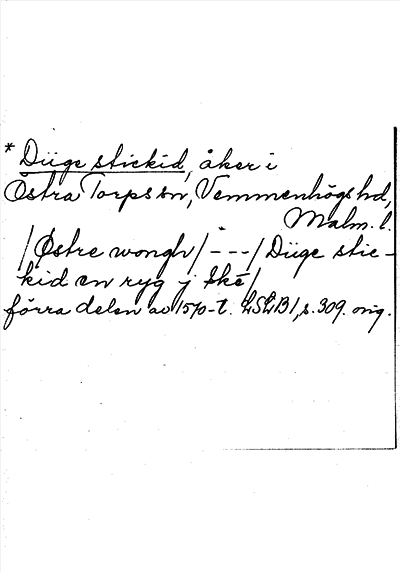 * Diige stickid, åker i
Östra Torps sn, Vemmenhögs hd,
Malm. l.
/Østre wongh/ - - - / Diige stic-
kid en ryg j Ske/
förra delen av 1570-t. LSLB1, s. 309. orig.